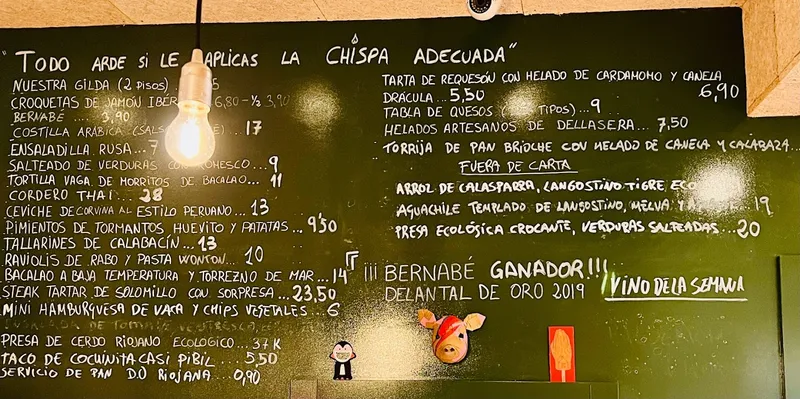 "TODO ARDE SI LE APLICAS LA CHISPA ADECUADA"
NUESTRA GILDA (2 PISOS)
CROQUETAS DE JAMÓN IBÉR 6,80 - ½ 3,90
BERNABÉ ... 3,90
COSTILLA ARÁBICA ... 17
ENSALADILLA RUSA ... 7
SALTEADO DE VERDURAS CON ROMESCO ... 9
TORTILLA VAGA DE MORRITOS DE BACALAO ... 11
CORDERO THAI ... 28
CEVICHE DE CORVINA AL ESTILO PERUANO ... 13
PIMIENTOS DE TORMANTOS HUEVITO Y PATATAS ... 9,50
TALLARINES DE CALABACÍN .. 13
RAVIOLIS DE RABO Y PASTA WONTON ... 10
BACALAO A BAJA TEMPERATURA Y TORREZNO DE MAR ... 14
STEAK TARTAR DE SOLOMILLO CON SORPRESA ... 23,50
MINI HAMBURGUESA DE VACA Y CHIPS VEGETALES .. 6
PRESA DE CERDO RIOJANO ECOLÓGICO ... 37 K
TACO DE COCHINITA CASI PIBIL ... 5,50
SERVICIO DE PAN D.O RIOJANA ... 0,90
TARTA DE REQUESÓN CON HELADO DE CARDAMOMO Y CANELA
6,90
DRÁCULA ... 5,50
TABLA DE QUESOS TIPOS) ... 9
HELADOS ARTESANOS DE DELLASERA ... 7,50
TORRIJA DE PAN BRIOCHE CON HELADO DE CANELA Y CALABAZA...
FUERA DE CARTA
ARROZ DE CALASPARRA, LANGOSTINO TIGRE ECO
AGUACHILE TEMPLADO DE LANGOSTINO, MELVA Y 19
PRESA ECOLÓGICA CROCANTE, VERDURAS SALTEADAS ... 20
¡¡¡ BERNABÉ GANADOR!!!
DELANTAL DE ORO 2019
VINO DE LA SEMANA